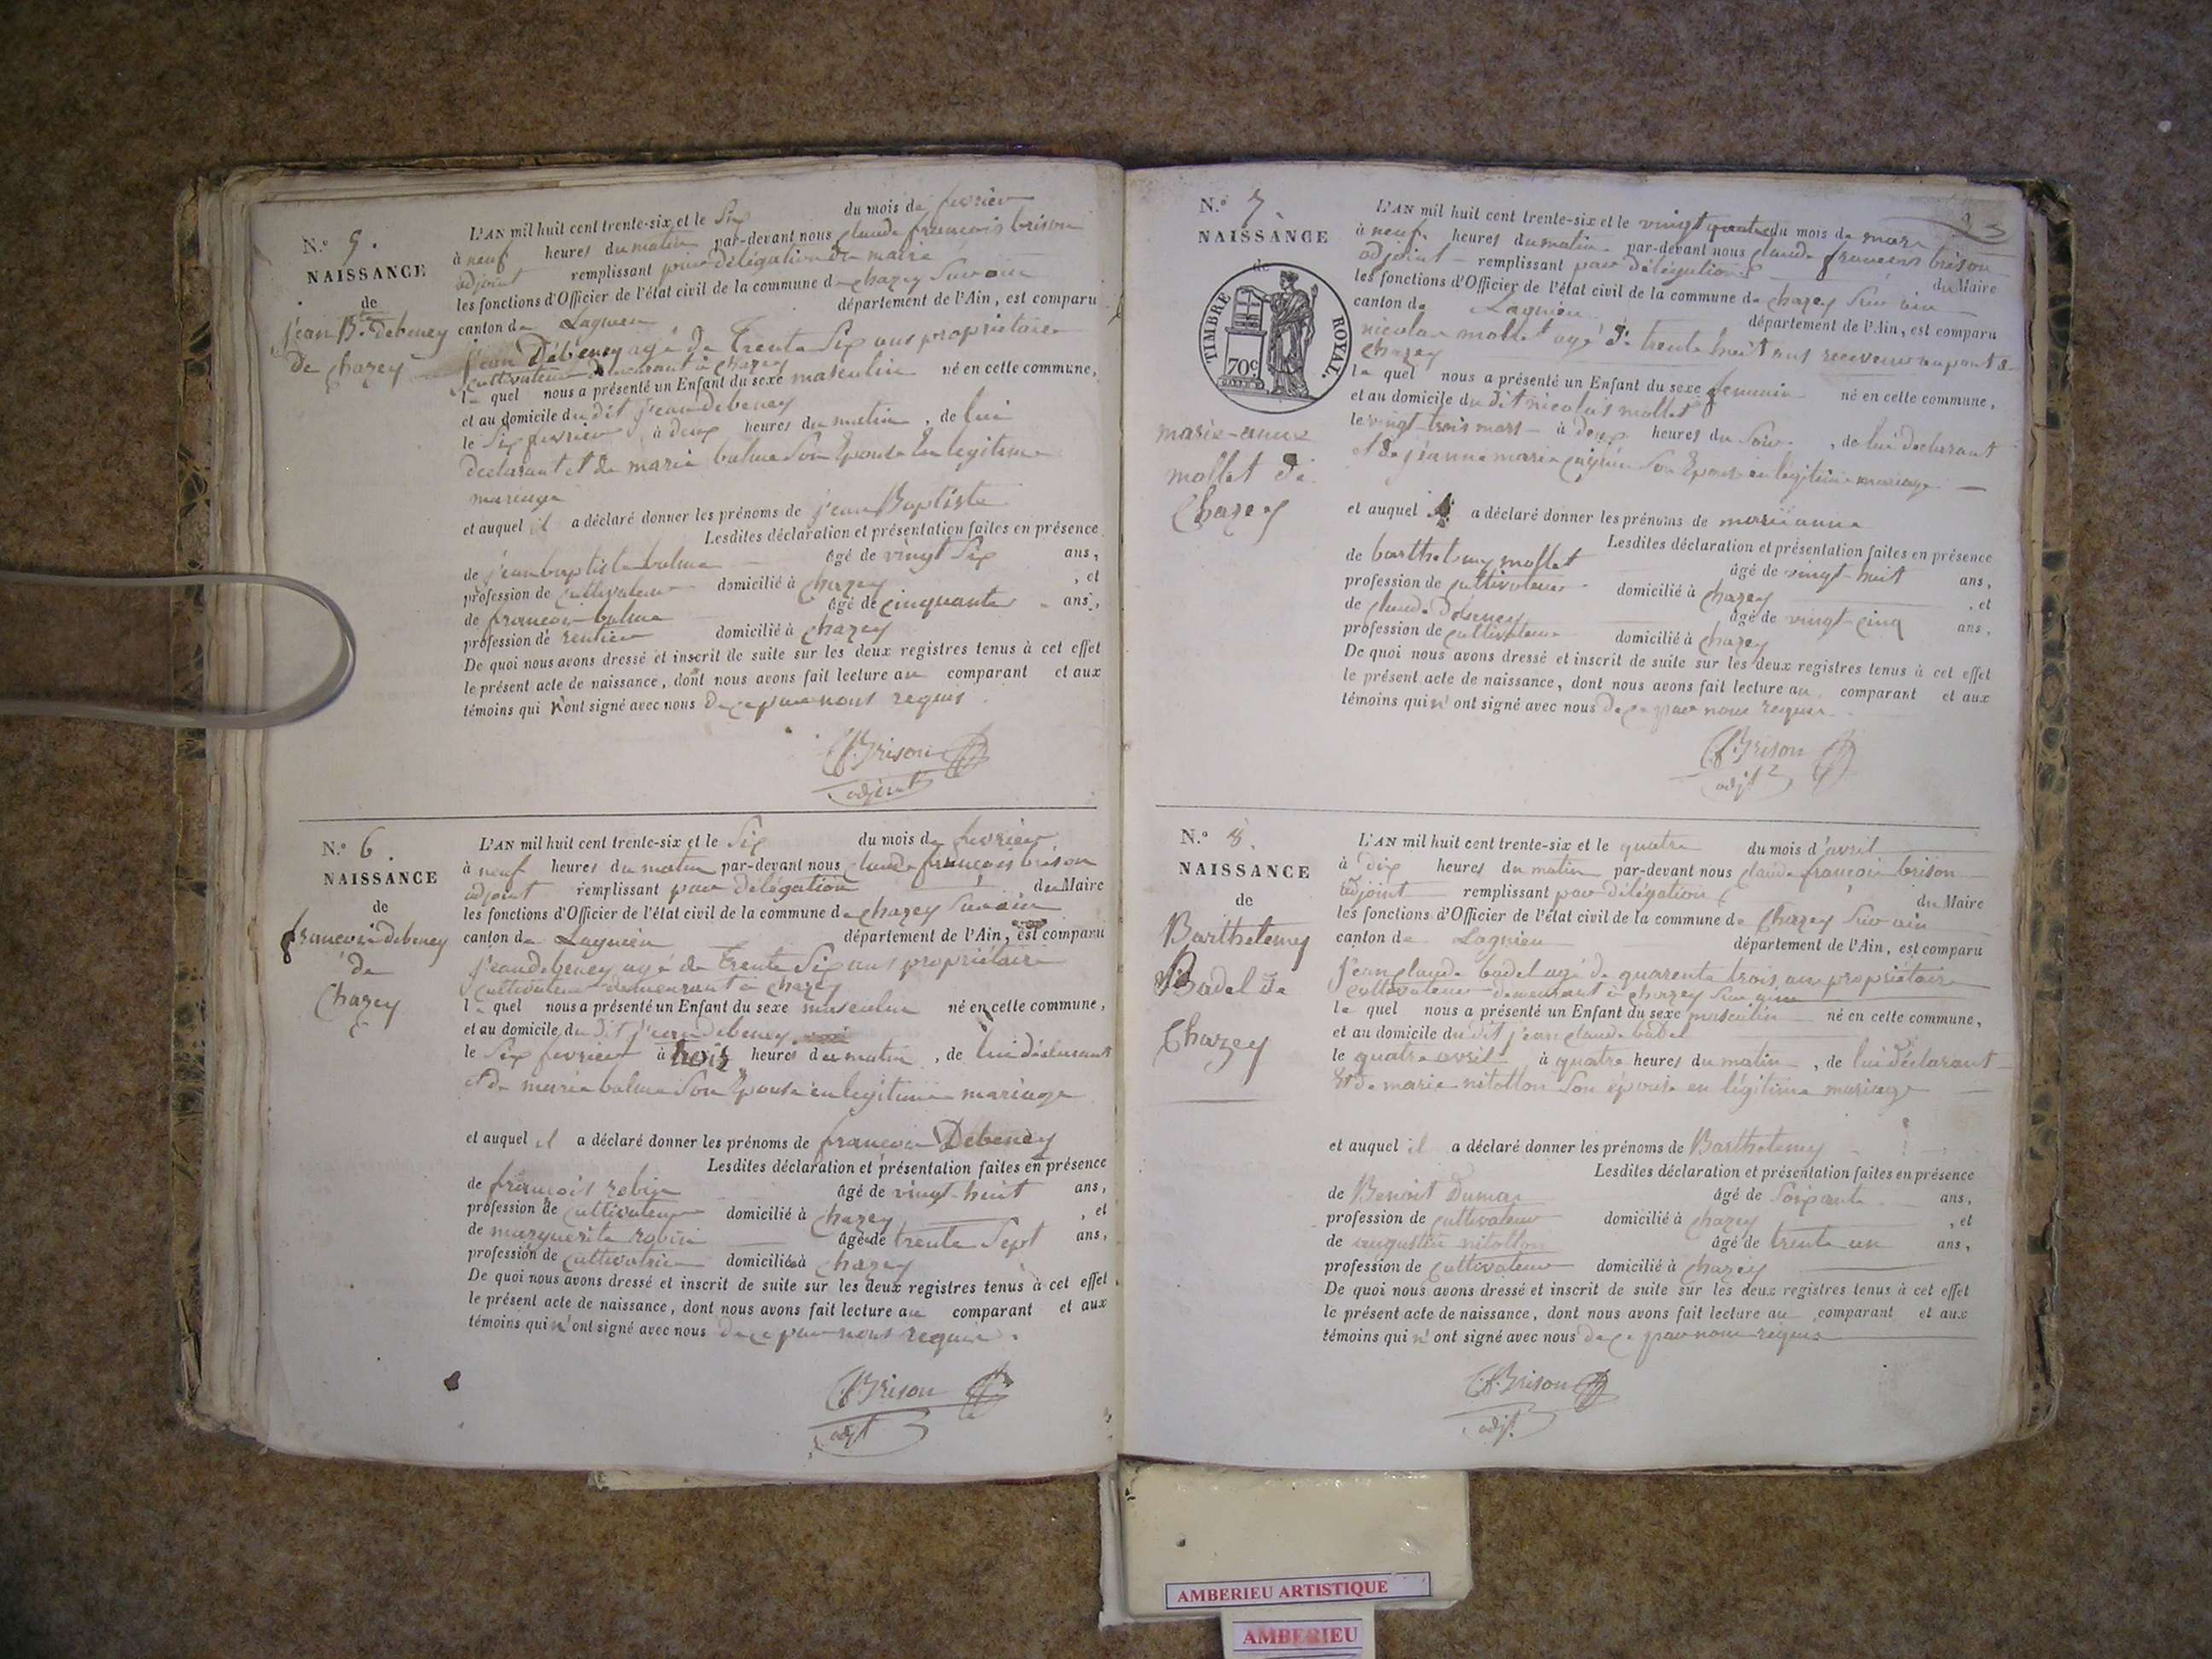 N.° 5.
NAISSANCE
de
jean B.te Debeney
de Chazey
L'AN mil huit cent trente-six et le Six du mois de fevrier
à neuf heures du matin par-devant nous claude francois brison
adjoint remplissant par délégation du maire
les fonctions d'Officier de l'état civil de la commune de chazey Sur ain
canton de Lagnieu département de l'Ain, est comparu
jean Débeney agé de trente Six ans propriétaire
cultivateur demeurant à chazey
le quel nous a présenté un Enfant du sexe masculin né en cette commune,
et au domicile du dit jean debeney
le Six fevrier à deux heures du matin, de lui
declarant et de marie balme Son Epouse En legitime
mariage
et auquel il a déclaré donner les prénoms de jean Baptiste
Lesdites déclaration et présentation faites en présence
de jean baptiste balme âgé de vingt Six ans,
profession de cultivateur domicilié à chazey, et
de francois balme âgé de cinquante ans,
profession de rentier domicilié à chazey
De quoi nous avons dressé et inscrit de suite sur les deux registres tenus à cet effet
le présent acte de naissance, dont nous avons fait lecture au comparant et aux
témoins qui n'ont signé avec nous de ce par nous requis.
C.f. Brison
adjoint
N.° 6.
NAISSANCE
de
francois debeney
de
Chazey
L'AN mil huit cent trente-six et le Six du mois de fevrier
à neuf heures du matin par-devant nous claude françois brison
adjoint remplissant par délégation du Maire
les fonctions d'Officier de l'état civil de la commune de chazey Sur ain
canton de Lagnieu département de l'Ain, est comparu
jean debeney agé de trente Six ans propriétaire
cultivateur demeurant à chazey
le quel nous a présenté un Enfant du sexe masculin né en cette commune,
et au domicile du dit jean debeney
le Six fevrier à trois heures du matin, de lui déclarant
et de marie balme Son Epouse en legitime mariage
et auquel il a déclaré donner les prénoms de francois Debeney
Lesdites déclaration et présentation faites en présence
de françois robin âgé de vingt-huit ans,
profession de cultivateur domicilié à chazey, et
de marguerite robin âgée de trente Sept ans,
profession de cultivatrice domiciliée à chazey
De quoi nous avons dressé et inscrit de suite sur les deux registres tenus à cet effet
le présent acte de naissance, dont nous avons fait lecture au comparant et aux
témoins qui n'ont signé avec nous de ce par nous requis.
C.f. Brison
adjt
3
N.° 7.
NAISSANCE
de
TIMBRE ROYAL.
70c
marie-anne
mollet de
Chazey
L'AN mil huit cent trente-six et le vingt quatre du mois de mars
à neuf heures du matin par-devant nous claude francois brison
adjoint remplissant par délégation du Maire
les fonctions d'Officier de l'état civil de la commune de chazey Sur ain
canton de Lagnieu département de l'Ain, est comparu
nicolas mollet agé de trente huit ans receveur au pont de
chazey
le quel nous a présenté un Enfant du sexe feminin né en cette commune,
et au domicile du dit nicolas mollet
le vingt-trois mars à deux heures du Soir, de lui declarant
et de jéanne marie Son Epouse en legitime mariage
et auquel il a déclaré donner les prénoms de marie anne
Lesdites déclaration et présentation faites en présence
de barthelemy mollet âgé de vingt-huit ans,
profession de cultivateur domicilié à chazey, et
de claude débeney âgé de vingt-cinq ans,
profession de cultivateur domicilié à chazey
De quoi nous avons dressé et inscrit de suite sur les deux registres tenus à cet effet
le présent acte de naissance, dont nous avons fait lecture au comparant et aux
témoins qui n'ont signé avec nous de ce par nous requis.
C.f. Brison
adjt
N.° 8.
NAISSANCE
de
Barthelemy
Badel de
Chazey
L'AN mil huit cent trente-six et le quatre du mois d'avril
à dix heures du matin par-devant nous claude françois brison
adjoint remplissant par délégation du Maire
les fonctions d'Officier de l'état civil de la commune de Chazey Sur ain
canton de Lagnieu département de l'Ain, est comparu
jean claude badel agé de quarente trois ans propriétaire
cultivateur demeurant à chazey Sur ain
le quel nous a présenté un Enfant du sexe masculin né en cette commune,
et au domicile du dit jean claude badel
le quatre avril à quatre heures du matin, de lui déclarant
et de marie nitollon Son épouse en légitime mariage
et auquel il a déclaré donner les prénoms de Barthelemy
Lesdites déclaration et présentation faites en présence
de Benoit Dumas âgé de Soixante ans,
profession de cultivateur domicilié à chazey, et
de augustin nitollon âgé de trente un ans,
profession de cultivateur domicilié à chazey
De quoi nous avons dressé et inscrit de suite sur les deux registres tenus à cet effet
le présent acte de naissance, dont nous avons fait lecture au comparant et aux
témoins qui n'ont signé avec nous de ce par nous requis
C.f. Brison
adjt.
AMBERIEU ARTISTIQUE
AMBERIEU